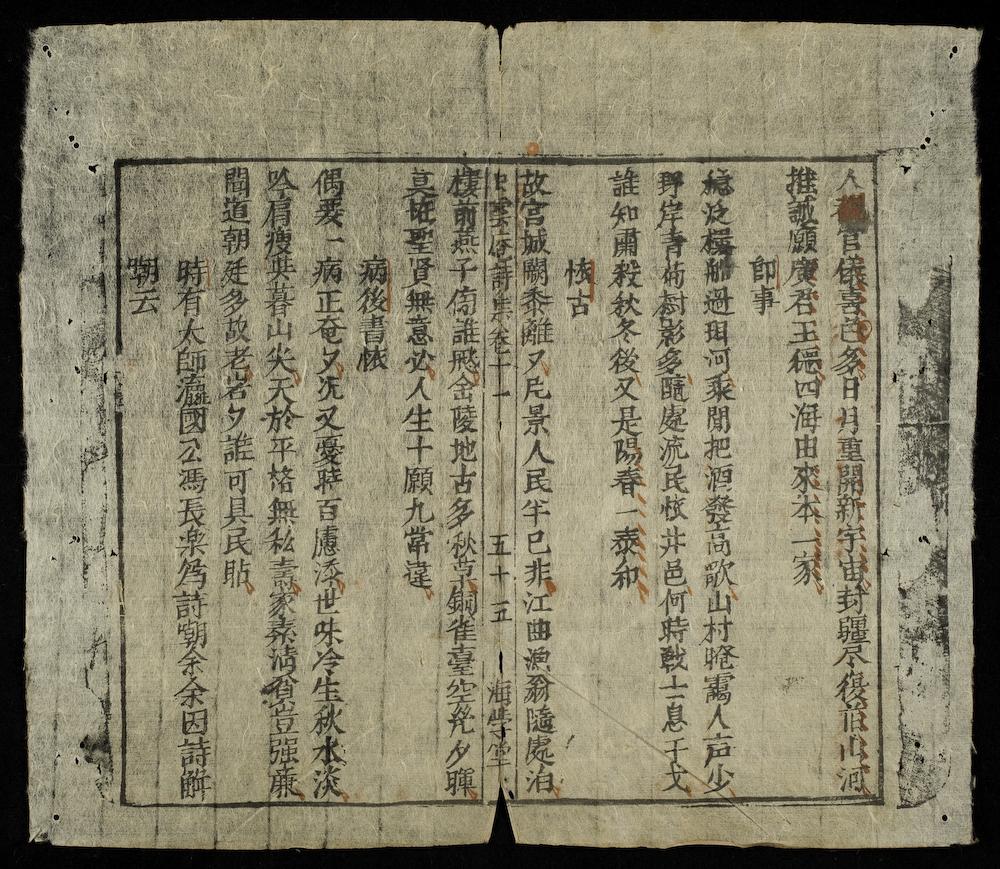 人覩官儀喜色多日月重開新宇宙封疆尽復旧山河
推誠願廣君王德四海由來本一家
即事
穏泛橫舟過珥河乘閒把酒發高歌山村晻靄人声少
野岸青葱樹影多隨處流民候井邑何時戰士息干戈
誰知肅殺秋冬後又是陽春一泰和
懷古
故宮城闕黍離〻尺景人民半已非江曲漁翁隨處泊
樓前燕子傍誰飛金陵地古多秋草銅雀臺空幾夕暉
莫怪聖賢無意必人生十願九常違
病後書懷
偶爾一病正奄〻況又憂時百慮添世味冷生秋水淡
吟肩瘦共暮山尖天於平格無私壽家素清省豈强廉
聞道朝廷多故老岩〻誰可具民瞻
時有太師瀛國公馮長楽為詩嘲余余因詩解
嘲云
白雲庵詩集卷之一 五十五 海學堂